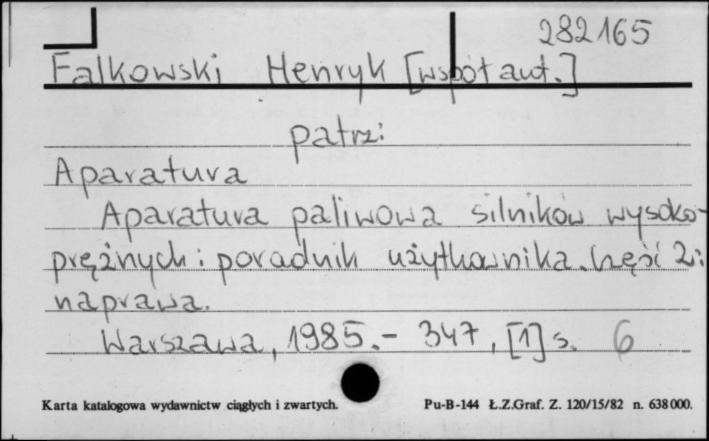 282165
Falkowski Henryk [współaut.]
patrz:
Aparatura
Aparatura paliwowa silników wysoko-
prężnych : poradnik użytkownika. Część 2:
naprawa.
Warszawa, 1985.- 347, [1] s. 6
Karta katalogowa wydawnictw ciągłych i zwartych. Pu-B-144 Ł.Z.Graf. Z. 120/15/82 n. 638000.